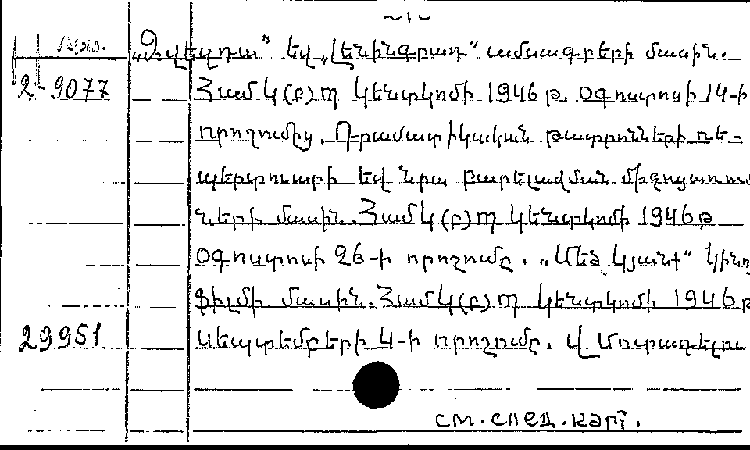 — 1 —
„Զվեզդա“ եվ „Լենինգրադ“ ամսագրերի մասին.
2-9077 ՀամԿ(բ)Պ Կենտկոմի 1946 թ. օգոստոսի 14-ի
որոշումից. Դրամատիկական թատրոնների ռե-
պերտուարի եվ նրա բարելավման միջոցառում
ների մասին. ՀամԿ(բ)Պ Կենտկոմի 1946 թ
օգոստոսի 26-ի որոշումը. „Մեծ կյանք“ կինո
ֆիլմի մասին. ՀամԿ(բ)Պ Կենտկոմի 1946 թ
29951 սեպտեմբերի 4-ի որոշումը.
см. спец. карт.